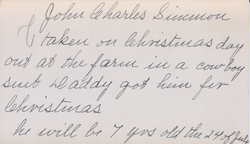 John Charles Simmon
taken on Christmas day
out at the farm in a cowboy
suit Daddy got him for
Christmas
he will be 7 yrs old the 24 of July